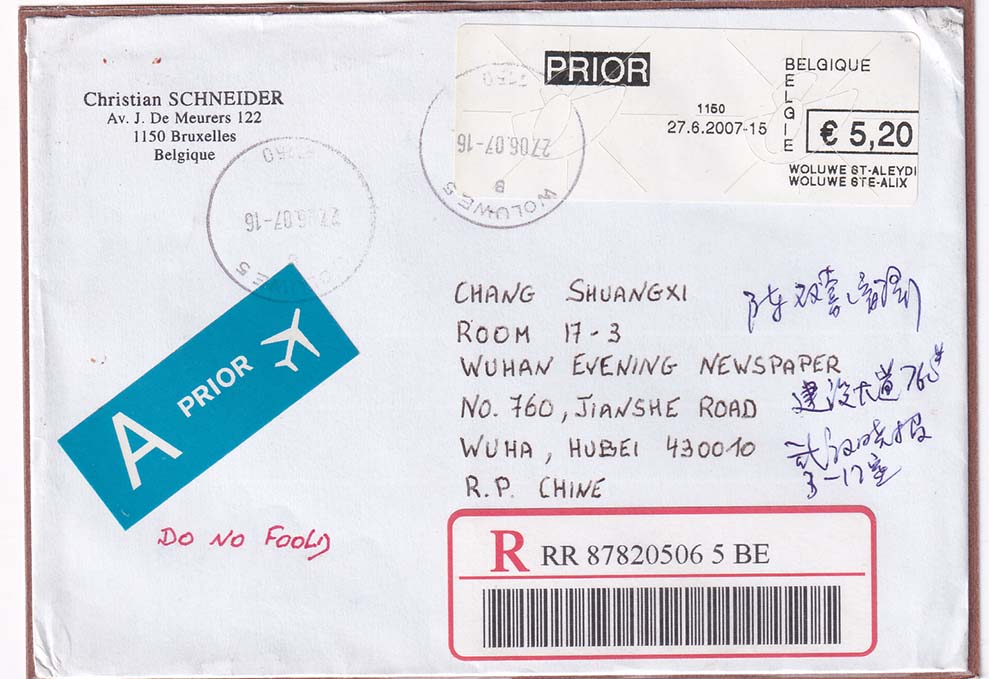 Christian SCHNEIDER
Av. J. De Meurers 122
1150 Bruxelles
Belgique
PRIOR
BELGIQUE
BELGIE
1150
27.6.2007-15
€ 5,20
WOLUWE ST-ALEYDI
WOLUWE STE-ALIX
1150
27.06.07-16
B
WOLUWE 5
1150
27.06.07-16
WOLUWE 5
A PRIOR
CHANG SHUANGXI
ROOM 17-3
WUHAN EVENING NEWSPAPER
NO. 760, JIANSHE ROAD
WUHA, HUBEI 430010
R.P. CHINE
建设大道
武汉晚报
3-17室
DO NO FOOLD
R RR 87820506 5 BE